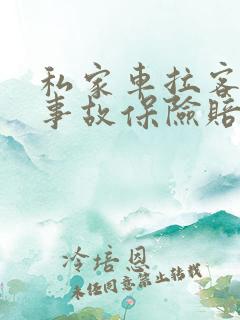 私家车拉客
事故保险赔
冷培恩
未经同意禁止转载